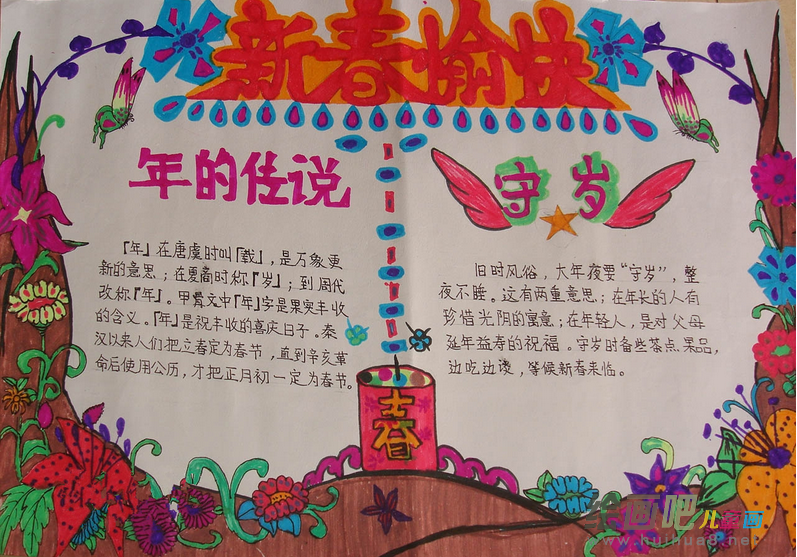 新春愉快
年的传说
「年」在唐虞时叫「载」,是万象更
新的意思;在夏商时称「岁」;到周代
改称「年」。甲骨文中「年」字是果实丰收
的含义。「年」是祝丰收的喜庆日子。秦
汉以来人们把立春定为春节,直到辛亥革
命后使用公历,才把正月初一定为春节。
守岁
旧时风俗,大年夜要“守岁”,整
夜不睡。这有两重意思:在年长的人有
珍惜光阴的寓意;在年轻人,是对父母
延年益寿的祝福。守岁时备些茶点果品,
边吃边谈,等候新春来临。
春
绘画吧儿童画
www.huihua8.net